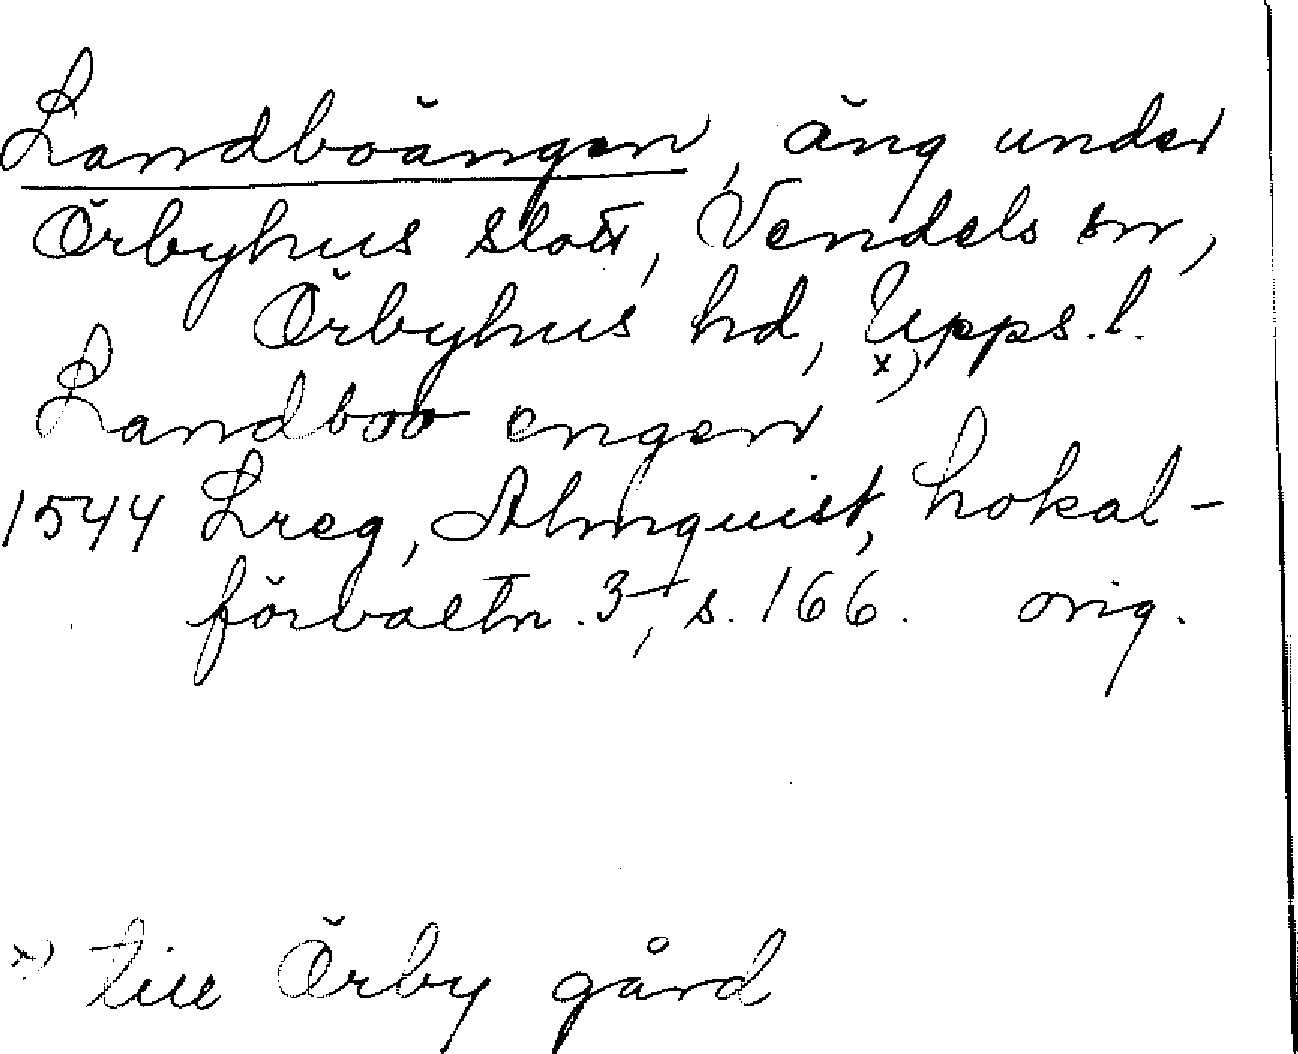 Landboängen, äng under
Örbyhus slott, Vendels sn,
Örbyhus hd, Upps.l.
Landboo engen x)
1544 Lreg, Almquist, Lokal-
förvaltn. 3, s. 166. orig.
x) till Örby gård